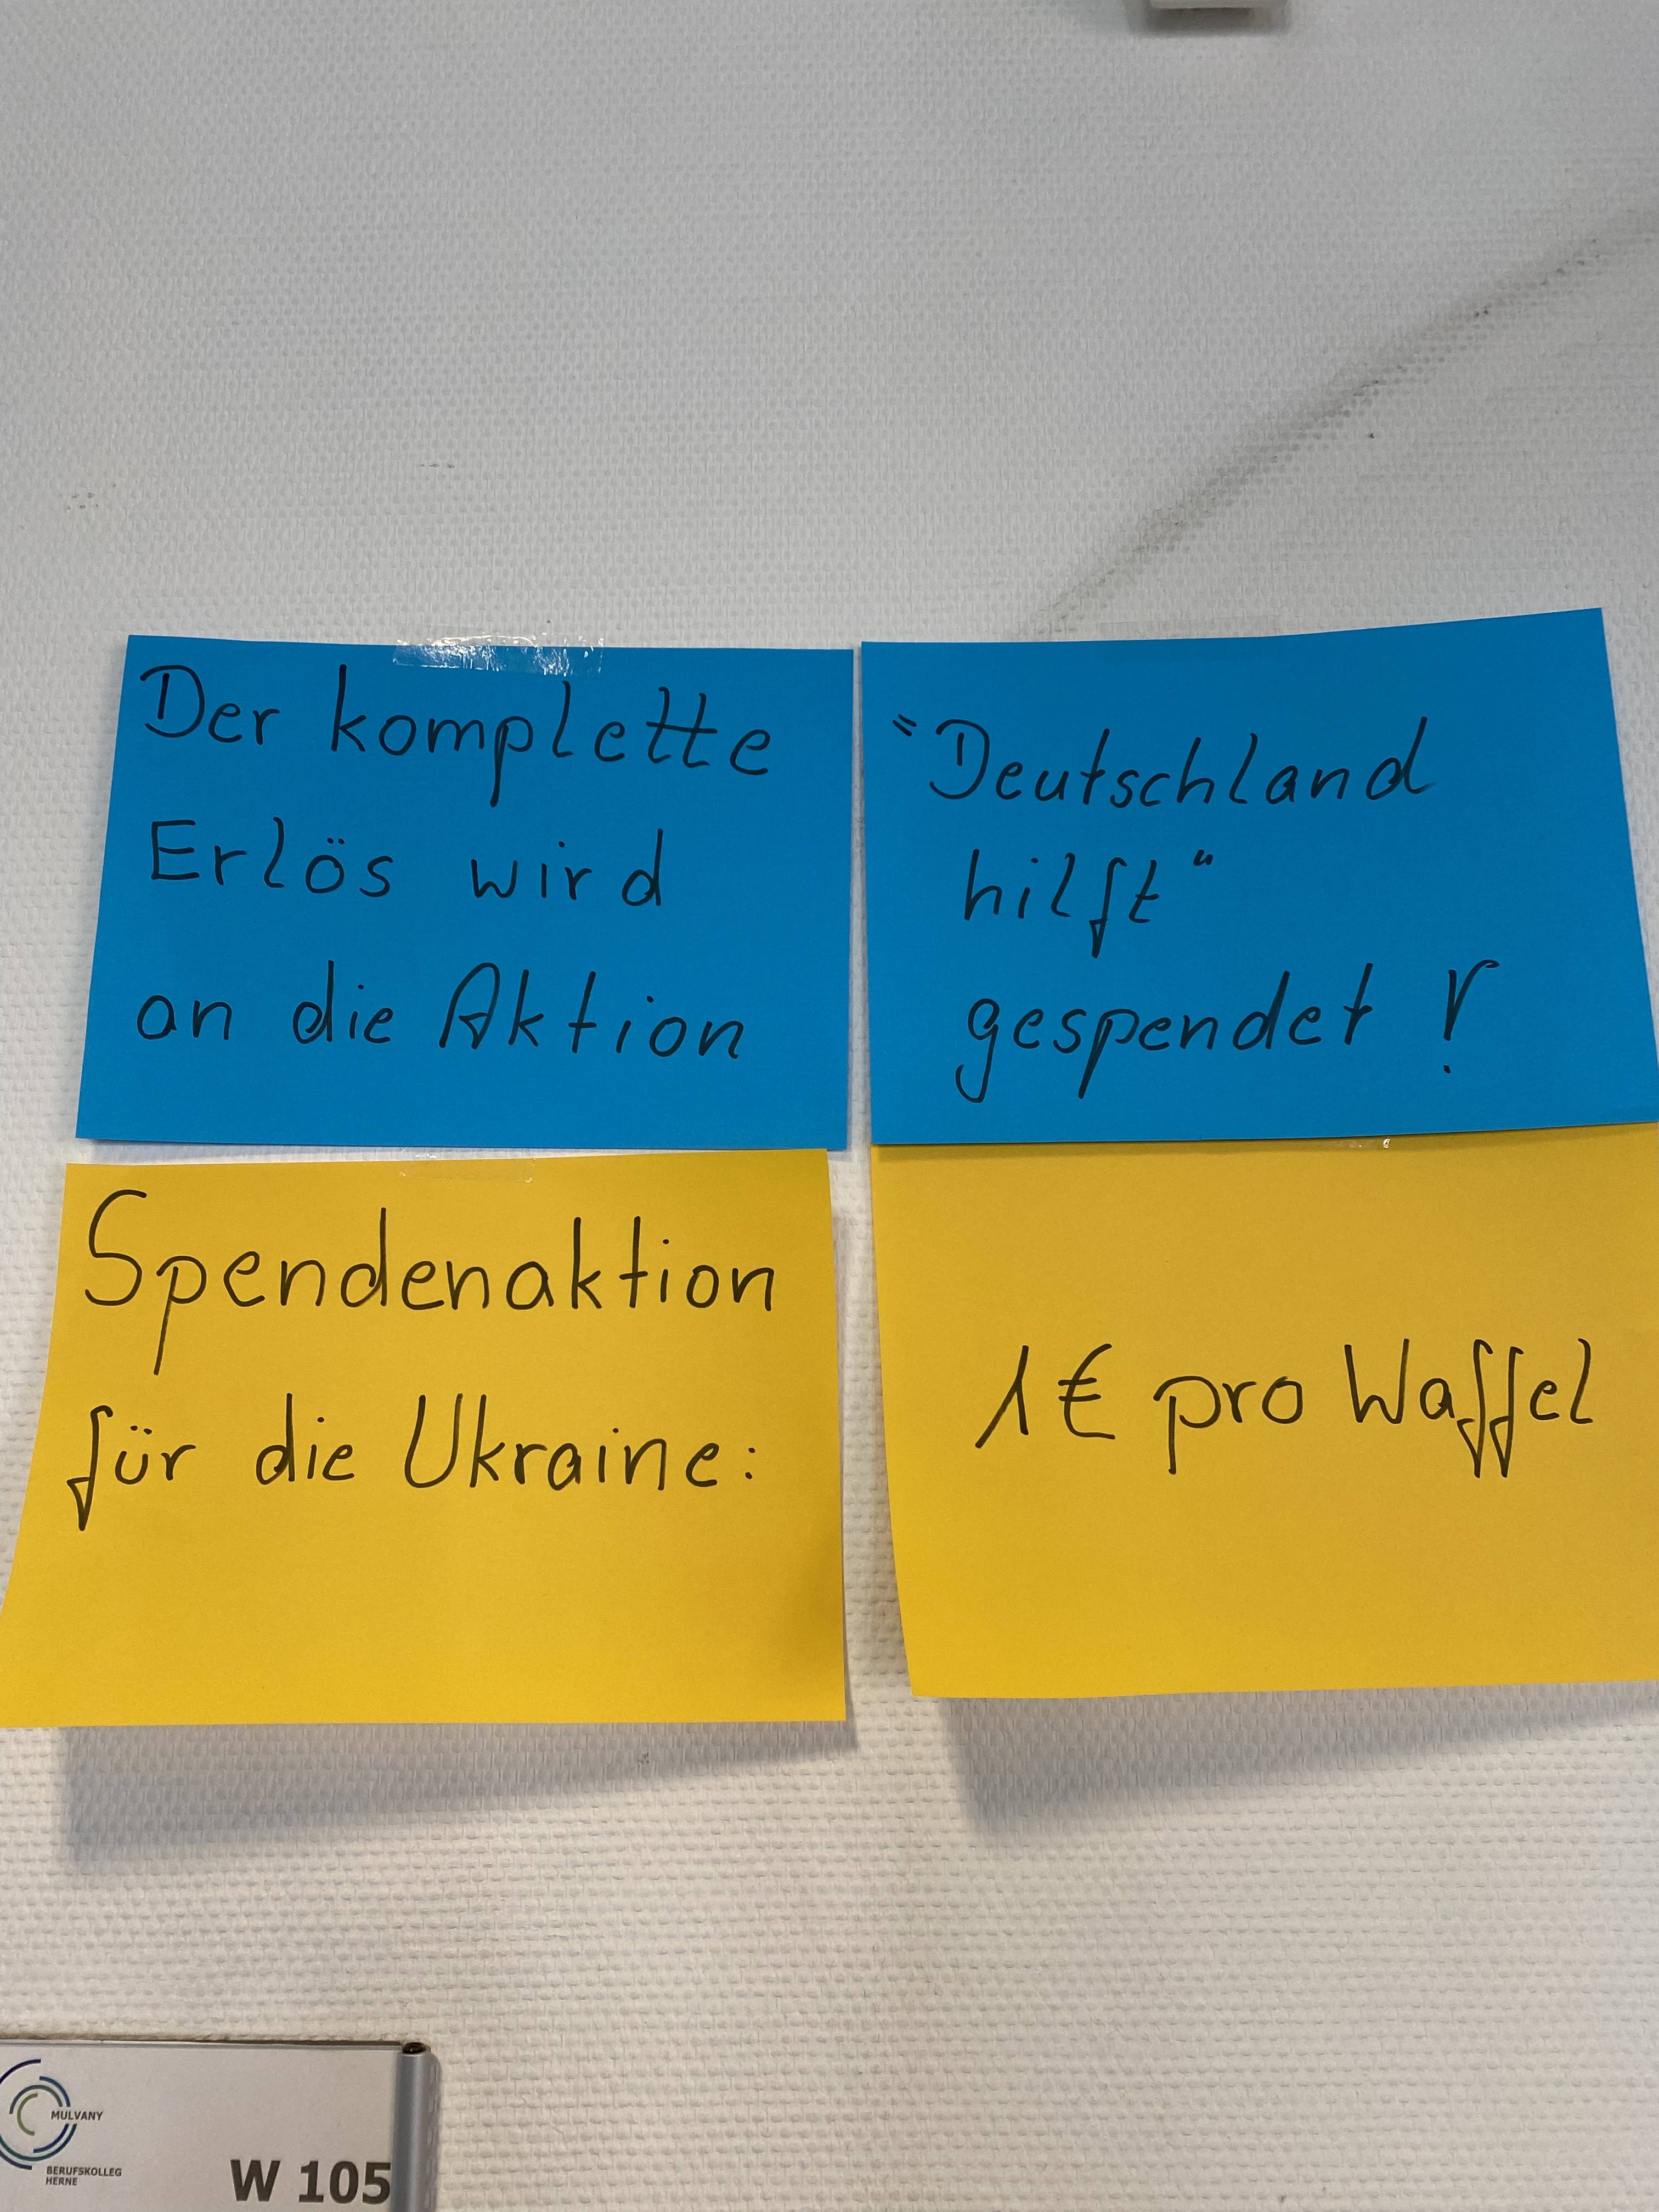 Der komplette
Erlös wird
an die Aktion
"Deutschland
hilft"
gespendet!
Spendenaktion
für die Ukraine:
1€ pro Waffel
MULVANY
BERUFSKOLLEG
HERNE
W 105